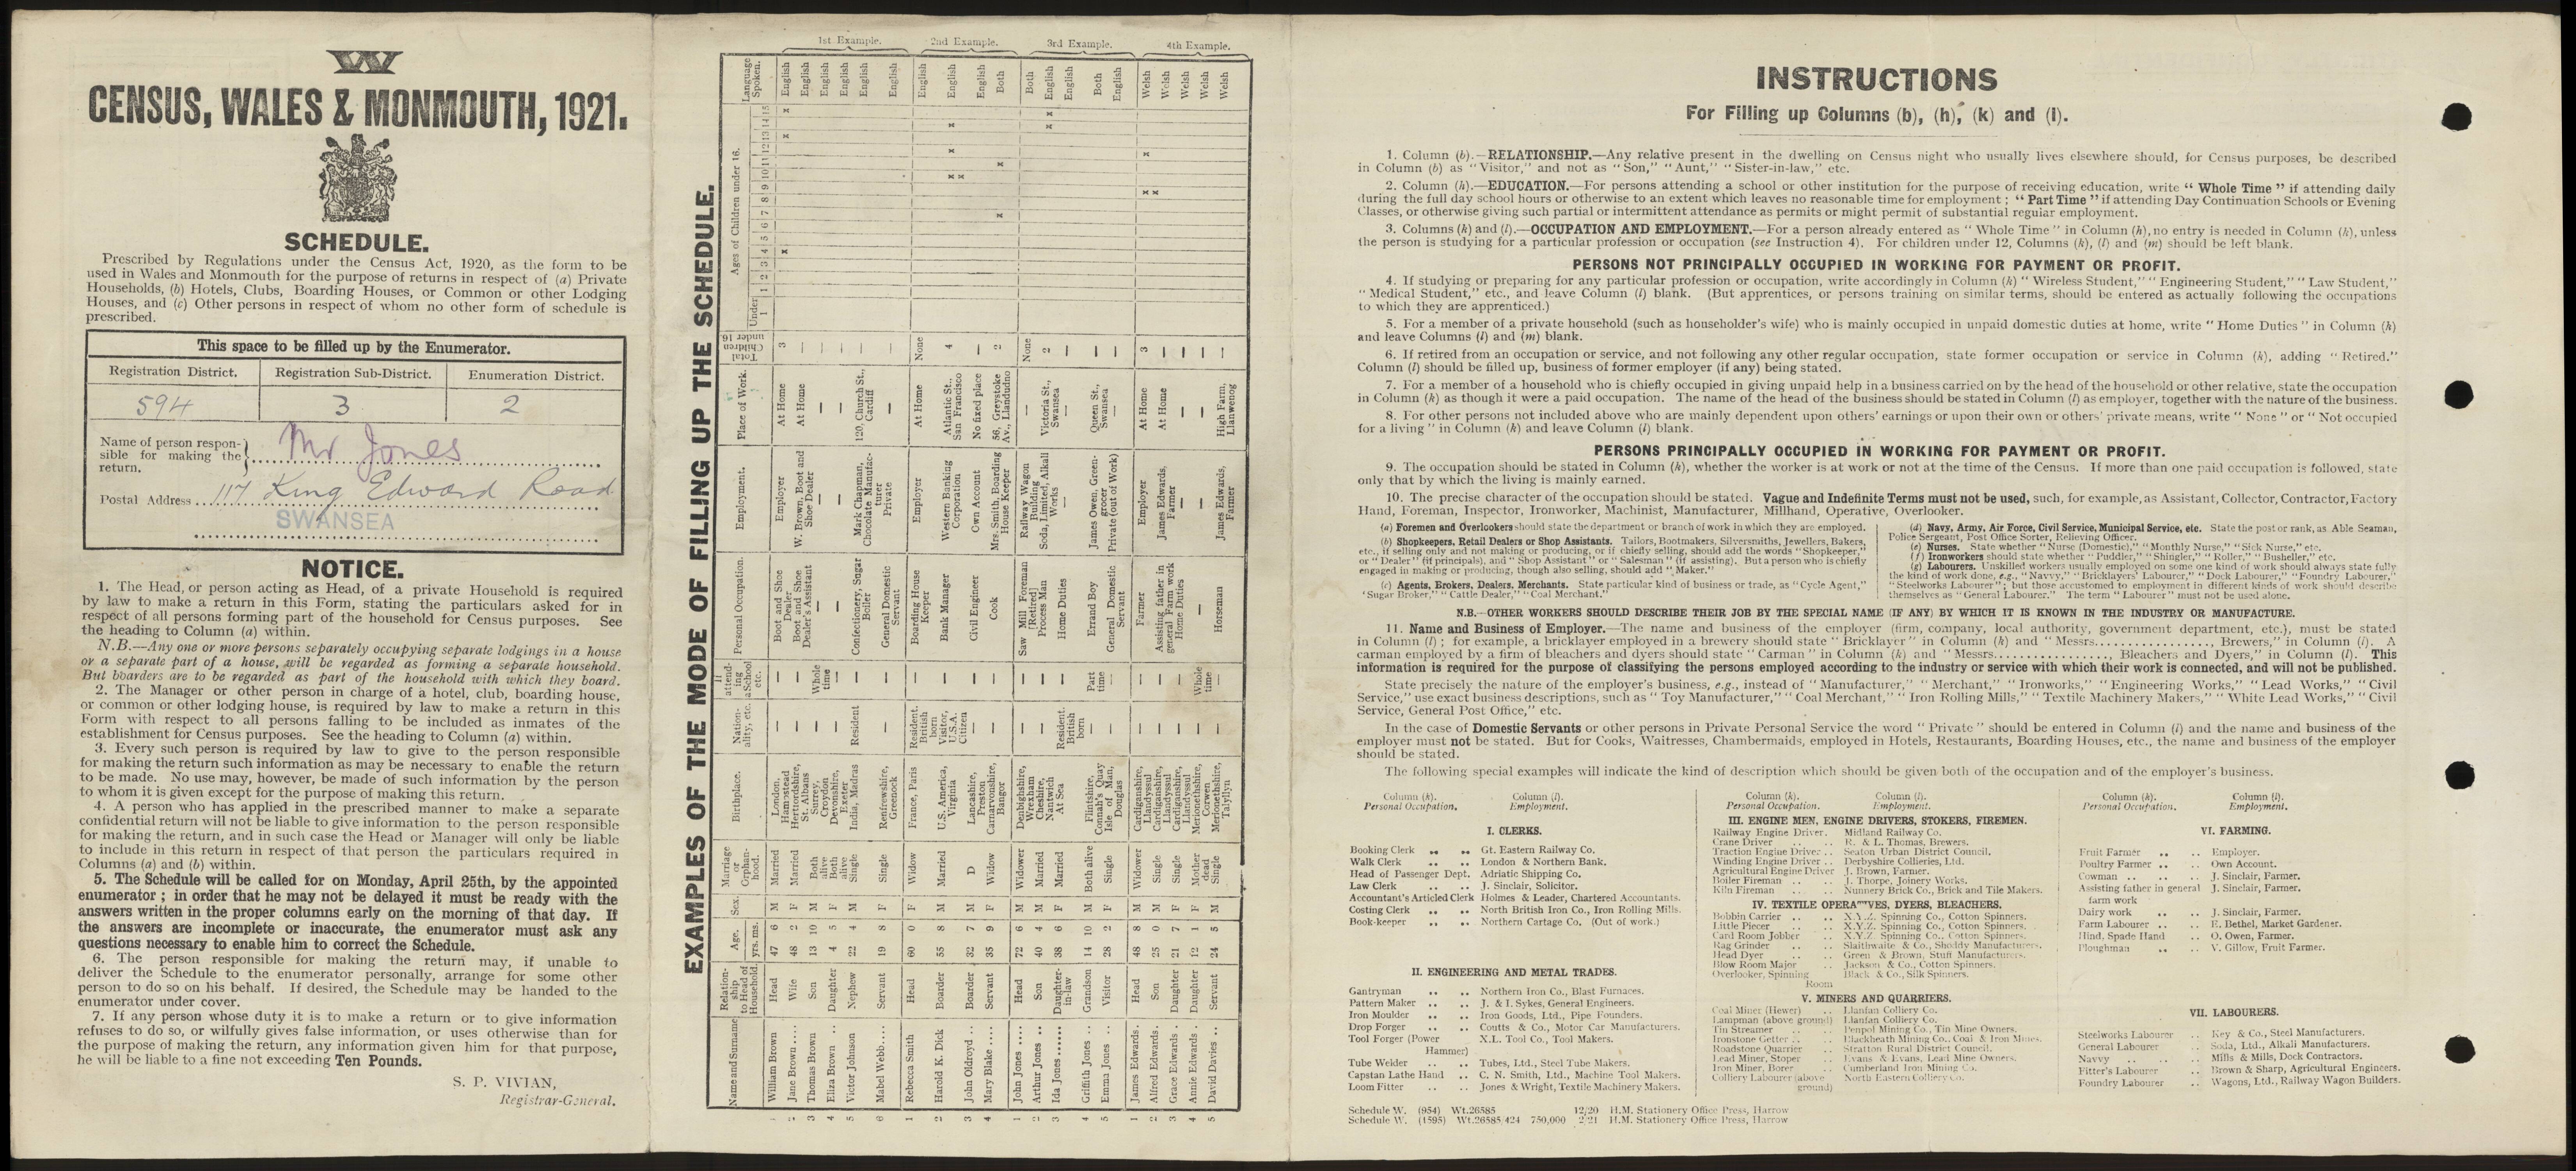 W
CENSUS, WALES & MONMOUTH, 1921.
SCHEDULE.
Prescribed by Regulations under the Census Act, 1920, as the form to be
used in Wales and Monmouth for the purpose of returns in respect of (a) Private
Households, (b) Hotels, Clubs, Boarding Houses, or Common or other Lodging
Houses, and (c) Other persons in respect of whom no other form of schedule is
prescribed.
This space to be filled up by the Enumerator.
Registration District. Registration Sub-District. Enumeration District.
594 3 2
Name of person respon-
sible for making the
return. Mr Jones
Postal Address .. 117 King Edward Road
SWANSEA
NOTICE.
1. The Head, or person acting as Head, of a private Household is required
by law to make a return in this Form, stating the particulars asked for in
respect of all persons forming part of the household for Census purposes. See
the heading to Column (a) within.
N.B.—Any one or more persons separately occupying separate lodgings in a house
or a separate part of a house, will be regarded as forming a separate household.
But boarders are to be regarded as part of the household with which they board.
2. The Manager or other person in charge of a hotel, club, boarding house,
or common or other lodging house, is required by law to make a return in this
Form with respect to all persons falling to be included as inmates of the
establishment for Census purposes. See the heading to Column (a) within.
3. Every such person is required by law to give to the person responsible
for making the return such information as may be necessary to enable the return
to be made. No use may, however, be made of such information by the person
to whom it is given except for the purpose of making this return.
4. A person who has applied in the prescribed manner to make a separate
confidential return will not be liable to give information to the person responsible
for making the return, and in such case the Head or Manager will only be liable
to include in this return in respect of that person the particulars required in
Columns (a) and (b) within.
5. The Schedule will be called for on Monday, April 25th, by the appointed
enumerator ; in order that he may not be delayed it must be ready with the
answers written in the proper columns early on the morning of that day. If
the answers are incomplete or inaccurate, the enumerator must ask any
questions necessary to enable him to correct the Schedule.
6. The person responsible for making the return may, if unable to
deliver the Schedule to the enumerator personally, arrange for some other
person to do so on his behalf. If desired, the Schedule may be handed to the
enumerator under cover.
7. If any person whose duty it is to make a return or to give information
refuses to do so, or wilfully gives false information, or uses otherwise than for
the purpose of making the return, any information given him for that purpose,
he will be liable to a fine not exceeding Ten Pounds.
S. P. VIVIAN,
Registrar-General.
EXAMPLES OF THE MODE OF FILLING UP THE SCHEDULE.
Name and Surname Relation-ship to Head of Household. Age. yrs. ms. Sex. Marriage or Orphan-hood. Birthplace. Nation-ality, etc. If attend-ing a School etc. Personal Occupation. Employment. Place of Work. Total Children under 16. Ages of Children under 16. Under 1 1 2 3 4 5 6 7 8 9 10 11 12 13 14 15 Language Spoken.
1st Example.
1 William Brown Head 47 6 M Married London, Hampstead — — Boot and Shoe Dealer Employer At Home 3 x x x English
2 Jane Brown .... Wife 48 2 F Married Hertfordshire, St. Albans — — Boot and Shoe Dealer's Assistant W. Brown, Boot and Shoe Dealer At Home — English
3 Thomas Brown Son 13 10 M Both alive Surrey, Croydon — Whole time — — — — English
4 Eliza Brown .. Daughter 4 5 F Both alive Devonshire, Exeter — — — — — — English
5 Victor Johnson Nephew 22 4 M Single India, Madras Resident — Confectionery, Sugar Boiler Mark Chapman, Chocolate Manufac-turer 120, Church St., Cardiff — English
6 Mabel Webb.... Servant 19 8 F Single Renfrewshire, Greenock — — General Domestic Servant Private — — English
2nd Example.
1 Rebecca Smith Head 60 0 F Widow France, Paris Resident. British born — Boarding House Keeper Employer At Home None English
2 Harold K. Dick Boarder 55 8 M Married U.S. America, Virginia Visitor, U.S.A. Citizen — Bank Manager Western Banking Corporation Atlantic St., San Francisco 4 x x x x English
3 John Oldroyd .. Boarder 32 7 M D Lancashire, Preston — — Civil Engineer Own Account No fixed place — English
4 Mary Blake .... Servant 35 9 F Widow Carnarvonshire, Bangor — — Cook Mrs. Smith, Boarding House Keeper 56, Greystoke Av., Llandudno 2 x x Both
3rd Example.
1 John Jones .... Head 72 6 M Widower Denbighshire, Wrexham — — Saw Mill Foreman (Retired) Railway Wagon Building — None Both
2 Arthur Jones .. Son 40 4 M Married Cheshire, Nantwich — — Process Man Soda, Limited, Alkali Works Victoria St., Swansea 2 x x English
3 Ida Jones ...... Daughter-in-law 38 6 F Married At Sea Resident. British born — Home Duties — — — English
4 Griffith Jones .. Grandson 14 10 M Both alive Flintshire, Connah's Quay — Part time Errand Boy James Owen, Green-grocer Queen St., Swansea — Both
5 Emma Jones .. Visitor 28 2 F Single Isle of Man, Douglas — — General Domestic Servant Private (out of Work) — — English
4th Example.
1 James Edwards . Head 48 8 M Widower Cardiganshire, Llandyssul — — Farmer Employer At Home 3 x x x Welsh
2 Alfred Edwards . Son 25 0 M Single Cardiganshire, Llandyssul — — Assisting father in general Farm work James Edwards, Farmer At Home — Welsh
3 Grace Edwards . Daughter 21 7 F Single Cardiganshire, Llandyssul — — Home Duties — — — Welsh
4 Annie Edwards . Daughter 12 1 F Mother dead Merionethshire, Corwen — Whole time — — — — Welsh
5 David Davies .. Servant 24 5 M Single Merionethshire, Talyllyn — — Horseman James Edwards, Farmer High Farm, Llanwenog — Welsh
INSTRUCTIONS
For Filling up Columns (b), (h), (k) and (l).
1. Column (b).—RELATIONSHIP.—Any relative present in the dwelling on Census night who usually lives elsewhere should, for Census purposes, be described
in Column (b) as “ Visitor,” and not as “ Son,” “ Aunt,” “ Sister-in-law,” etc.
2. Column (h).—EDUCATION.—For persons attending a school or other institution for the purpose of receiving education, write “ Whole Time ” if attending daily
during the full day school hours or otherwise to an extent which leaves no reasonable time for employment ; “ Part Time ” if attending Day Continuation Schools or Evening
Classes, or otherwise giving such partial or intermittent attendance as permits or might permit of substantial regular employment.
3. Columns (k) and (l).—OCCUPATION AND EMPLOYMENT.—For a person already entered as “ Whole Time ” in Column (h), no entry is needed in Column (k), unless
the person is studying for a particular profession or occupation (see Instruction 4). For children under 12, Columns (k), (l) and (m) should be left blank.
PERSONS NOT PRINCIPALLY OCCUPIED IN WORKING FOR PAYMENT OR PROFIT.
4. If studying or preparing for any particular profession or occupation, write accordingly in Column (k) “ Wireless Student,” “ Engineering Student,” “ Law Student,”
“ Medical Student,” etc., and leave Column (l) blank. (But apprentices, or persons training on similar terms, should be entered as actually following the occupations
to which they are apprenticed.)
5. For a member of a private household (such as householder's wife) who is mainly occupied in unpaid domestic duties at home, write “ Home Duties ” in Column (k)
and leave Columns (l) and (m) blank.
6. If retired from an occupation or service, and not following any other regular occupation, state former occupation or service in Column (k), adding “ Retired.”
Column (l) should be filled up, business of former employer (if any) being stated.
7. For a member of a household who is chiefly occupied in giving unpaid help in a business carried on by the head of the household or other relative, state the occupation
in Column (k) as though it were a paid occupation. The name of the head of the business should be stated in Column (l) as employer, together with the nature of the business.
8. For other persons not included above who are mainly dependent upon others' earnings or upon their own or others' private means, write “ None ” or “ Not occupied
for a living ” in Column (k) and leave Column (l) blank.
PERSONS PRINCIPALLY OCCUPIED IN WORKING FOR PAYMENT OR PROFIT.
9. The occupation should be stated in Column (k), whether the worker is at work or not at the time of the Census. If more than one paid occupation is followed, state
only that by which the living is mainly earned.
10. The precise character of the occupation should be stated. Vague and Indefinite Terms must not be used, such, for example, as Assistant, Collector, Contractor, Factory
Hand, Foreman, Inspector, Ironworker, Machinist, Manufacturer, Millhand, Operative, Overlooker.
(a) Foremen and Overlookers should state the department or branch of work in which they are employed.
(b) Shopkeepers, Retail Dealers or Shop Assistants. Tailors, Bootmakers, Silversmiths, Jewellers, Bakers,
etc., if selling only and not making or producing, or if chiefly selling, should add the words “Shopkeeper,”
or “ Dealer ” (if principals), and “ Shop Assistant ” or “ Salesman ” (if assisting). But a person who is chiefly
engaged in making or producing, though also selling, should add “ Maker.”
(c) Agents, Brokers, Dealers, Merchants. State particular kind of business or trade, as “Cycle Agent,”
“Sugar Broker,” “ Cattle Dealer,” “Coal Merchant.”
(d) Navy, Army, Air Force, Civil Service, Municipal Service, etc. State the post or rank, as Able Seaman,
Police Sergeant, Post Office Sorter, Relieving Officer.
(e) Nurses. State whether “ Nurse (Domestic),” “ Monthly Nurse,” “ Sick Nurse,” etc.
(f) Ironworkers should state whether “ Puddler,” “ Shingler,” “ Roller,” “ Busheller,” etc.
(g) Labourers. Unskilled workers usually employed on some one kind of work should always state fully
the kind of work done, e.g., “ Navvy,” “ Bricklayers' Labourer,” “ Dock Labourer,” “ Foundry Labourer,”
“ Steelworks Labourer ” ; but those accustomed to employment in different kinds of work should describe
themselves as “ General Labourer.” The term “ Labourer ” must not be used alone.
N.B.—OTHER WORKERS SHOULD DESCRIBE THEIR JOB BY THE SPECIAL NAME (IF ANY) BY WHICH IT IS KNOWN IN THE INDUSTRY OR MANUFACTURE.
11. Name and Business of Employer.—The name and business of the employer (firm, company, local authority, government department, etc.), must be stated
in Column (l) ; for example, a bricklayer employed in a brewery should state “ Bricklayer ” in Column (k) and “ Messrs................., Brewers,” in Column (l). A
carman employed by a firm of bleachers and dyers should state “ Carman ” in Column (k) and “ Messrs................., Bleachers and Dyers,” in Column (l). This
information is required for the purpose of classifying the persons employed according to the industry or service with which their work is connected, and will not be published.
State precisely the nature of the employer's business, e.g., instead of “ Manufacturer,” “ Merchant,” “ Ironworks,” “ Engineering Works,” “ Lead Works,” “ Civil
Service,” use exact business descriptions, such as “ Toy Manufacturer,” “ Coal Merchant,” “ Iron Rolling Mills,” “ Textile Machinery Makers,” “ White Lead Works,” “ Civil
Service, General Post Office,” etc.
In the case of Domestic Servants or other persons in Private Personal Service the word “ Private ” should be entered in Column (l) and the name and business of the
employer must not be stated. But for Cooks, Waitresses, Chambermaids, employed in Hotels, Restaurants, Boarding Houses, etc., the name and business of the employer
should be stated.
The following special examples will indicate the kind of description which should be given both of the occupation and of the employer's business.
Column (k). Column (l).
Personal Occupation. Employment.
I. CLERKS.
Booking Clerk .. .. Gt. Eastern Railway Co.
Walk Clerk .. .. London & Northern Bank.
Head of Passenger Dept. Adriatic Shipping Co.
Law Clerk .. .. J. Sinclair, Solicitor.
Accountant's Articled Clerk Holmes & Leader, Chartered Accountants.
Costing Clerk .. .. North British Iron Co., Iron Rolling Mills.
Book-keeper .. .. Northern Cartage Co. (Out of work.)
II. ENGINEERING AND METAL TRADES.
Gantryman .. .. Northern Iron Co., Blast Furnaces.
Pattern Maker .. .. J. & I. Sykes, General Engineers.
Iron Moulder .. .. Iron Goods, Ltd., Pipe Founders.
Drop Forger .. .. Coutts & Co., Motor Car Manufacturers.
Tool Forger (Power X.L. Tool Co., Tool Makers.
Hammer)
Tube Welder .. .. Tubes, Ltd., Steel Tube Makers.
Capstan Lathe Hand .. C. N. Smith, Ltd., Machine Tool Makers.
Loom Fitter .. .. Jones & Wright, Textile Machinery Makers.
Column (k). Column (l).
Personal Occupation. Employment.
III. ENGINE MEN, ENGINE DRIVERS, STOKERS, FIREMEN.
Railway Engine Driver. Midland Railway Co.
Crane Driver .. .. R. & L. Thomas, Brewers.
Traction Engine Driver .. Seaton Urban District Council.
Winding Engine Driver .. Derbyshire Collieries, Ltd.
Agricultural Engine Driver J. Brown, Farmer.
Boiler Fireman .. .. J. Thorpe, Joinery Works.
Kiln Fireman .. .. Nunnery Brick Co., Brick and Tile Makers.
IV. TEXTILE OPERATIVES, DYERS, BLEACHERS.
Bobbin Carrier .. .. X.Y.Z. Spinning Co., Cotton Spinners.
Little Piecer .. .. X.Y.Z. Spinning Co., Cotton Spinners.
Card Room Jobber .. X.Y.Z. Spinning Co., Cotton Spinners.
Rag Grinder .. .. Slaithwaite & Co., Shoddy Manufacturers.
Head Dyer .. .. Green & Brown, Stuff Manufacturers.
Blow Room Major .. Jackson & Co., Cotton Spinners.
Overlooker, Spinning Black & Co., Silk Spinners.
Room
V. MINERS AND QUARRIERS.
Coal Miner (Hewer) .. Llanfan Colliery Co.
Lampman (above ground) Llanfan Colliery Co.
Tin Streamer .. .. Penpol Mining Co., Tin Mine Owners.
Ironstone Getter .. .. Blackheath Mining Co., Coal & Iron Mines.
Roadstone Quarrier .. Stratton Rural District Council.
Lead Miner, Stoper .. Evans & Evans, Lead Mine Owners.
Iron Miner, Borer .. Cumberland Iron Mining Co.
Colliery Labourer (above North Eastern Colliery Co.
ground)
Column (k). Column (l).
Personal Occupation. Employment.
VI. FARMING.
Fruit Farmer .. .. Employer.
Poultry Farmer .. .. Own Account.
Cowman .. .. .. J. Sinclair, Farmer.
Assisting father in general J. Sinclair, Farmer.
farm work
Dairy work .. .. J. Sinclair, Farmer.
Farm Labourer .. .. E. Bethel, Market Gardener.
Hind, Spade Hand .. O. Owen, Farmer.
Ploughman .. .. V. Gillow, Fruit Farmer.
VII. LABOURERS.
Steelworks Labourer .. Key & Co., Steel Manufacturers.
General Labourer .. Soda, Ltd., Alkali Manufacturers.
Navvy .. .. .. Mills & Mills, Dock Contractors.
Fitter's Labourer .. Brown & Sharp, Agricultural Engineers.
Foundry Labourer .. Wagons, Ltd., Railway Wagon Builders.
Schedule W. (954) Wt.26585 12/20 H.M. Stationery Office Press, Harrow
Schedule W. (1595) Wt.26585/424 750,000 2/21 H.M. Stationery Office Press, Harrow